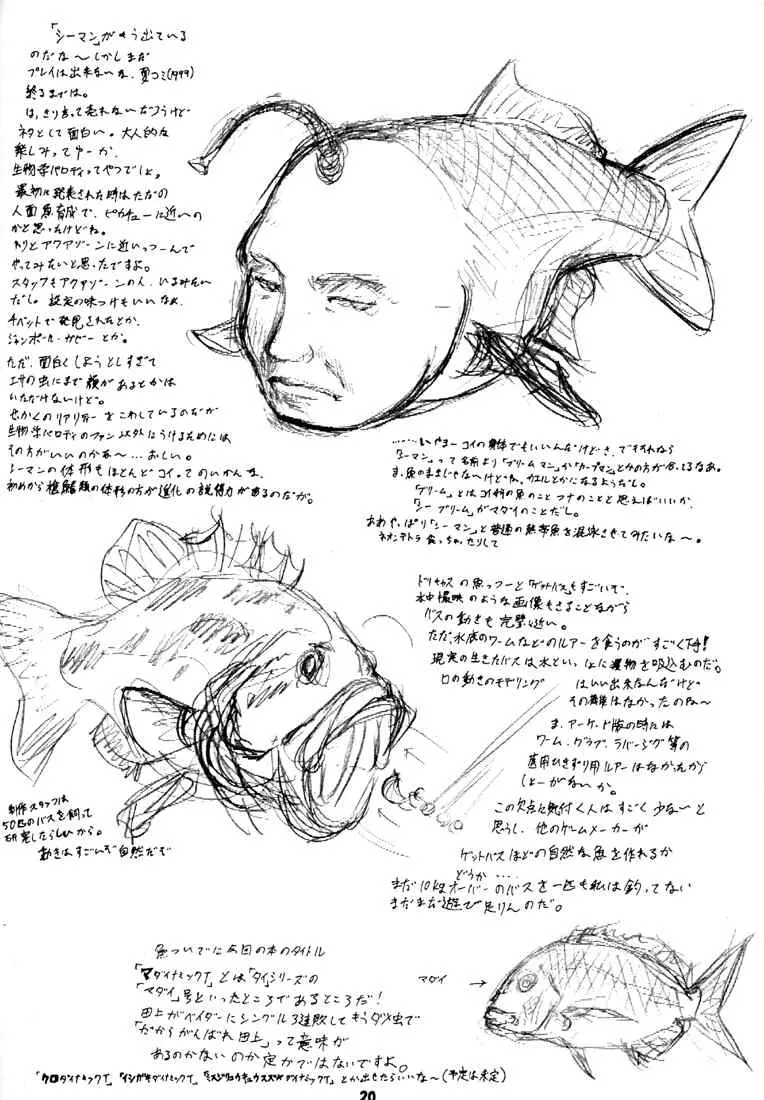 「シーマン」がもう出ている
のだな〜しかしまだ
プレイは出来ないな、夏コミ(1999)
終るまでは。
は、きり言って売れないだろうけど
ネタとして面白い。大人的な
楽しみってゆーか、
生物学パロディってやつでしょ。
最初に発表された時はただの
人面魚育成で、ピカチューに近いの
かと思ったけどね。
わりとアクアゾーンに近いっつーんで
やってみたいと思ったですよ。
スタッフもアクアゾーンの人、いるみたい
だし。設定の味つけもいいなぁ、
チベットで発見されたとか、
ジャンポール・ガビーとか。
ただ、面白くしようとしすぎて
エサの虫にまで顔があるとかは
いただけないけど。
せかくのリアリティーをこわしているのだが
生物学パロディのファン以外にうけるためには
その方がいいのかな〜…おしい。
シーマンの体形もほとんどコイってのいかんな、
初めから
類の体形の方が進化の説得力があるのだが。
……いやまーコイの身体でもいいんだけどさ、ですすれなら
「シーマン」って名前より「ブリームマン」か「カープマン」とかの方が合ってるなあ。
ま、魚のままじゃないけどね、カエルとかになるようだし。
「ブリーム」とはコイ科の魚のこと フナのことと思えばいいか、
「シーブリーム」がマダイのことだし。
あぁやっぱり「シーマン」と普通の熱帯魚を混泳させてみたいな〜。
ネオンテトラ食っちゃったりして
ドリキャスの魚っつーと「ゲットバス」もすごいで、
水中撮映のような画像もさることながら
バスの動きも完璧に近い。
ただ、水底のワームなどのルアーを食うのがすごく下手!
現実の生きたバスは水といっしょに獲物を吸込むのだ。
口の動きのモデリング
はいい出来なんだけど
その
はなかったのね〜
ま、アーケード版の時には
ワーム・グラブ、ラバージグ等の
底用ひきずり用ルアーはなかったから
しょーがないか。
この欠点に気付く人はすごく少ないと
思うし、他のゲームメーカーが
ゲットバスほどの自然な魚を作れるか
どうか…‥
まだ10kgオーバーのバスを一匹も私は釣ってない
まだまだ遊び足りんのだ。
制作スタッフは
50匹のバスを飼って
研究したらしいから。
動きはすごいぞ自然だぞ
魚ついでに今回の本のタイトル
「マダイナミックT」とは「タイ」シリーズの
「マダイ」号といったところであるところだ!
田上がベイダーにシングル3連敗してもうダメ虫で
「だからがんばれ田上」って意味が
あるのかないのか定かではないですよ。
マダイ →
「クロダイナミックT」「イシガキダイナミックT」
とか出せたらいいな〜(予定は未定)
20